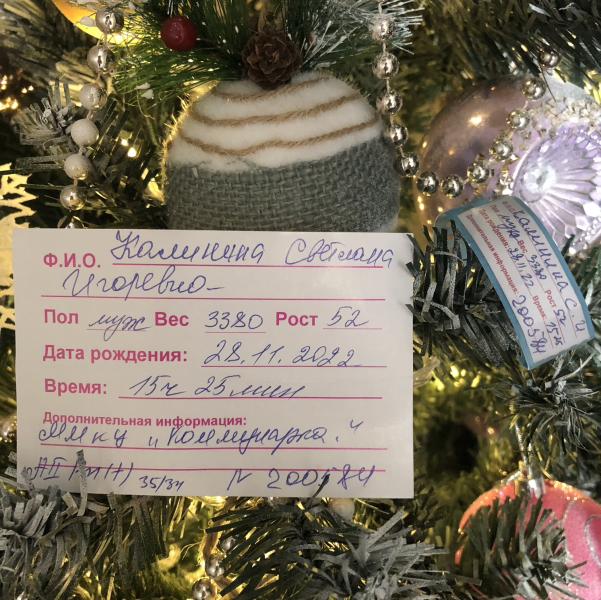 Ф.И.О. Калинина Светлана
Игоревна
Пол муж Вес 3380 Рост 52
Дата рождения: 28.11.2022
Время: 15ч 25мин
Дополнительная информация:
ММКЦ "Коммунарка"
AII Rh(+) 35/34 N 200584
Калинина С. И
Пол муж Вес 3380 Рост 52
Дата рождения: 28.11.22 Время: 15 25
Дополнительная информация:
200584